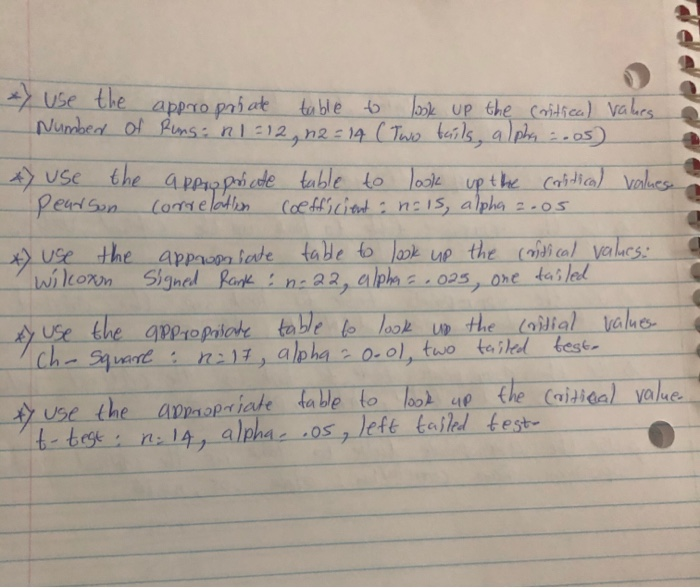 *) Use the appropriate table to look up the critical values
Number of Runs: n1=12, n2=14 (Two tails, alpha = .05)
*) Use the appropriate table to look up the critical values.
Pearson correlation coefficient: n=15, alpha = .05
*) Use the appropriate table to look up the critical values:
Wilcoxon Signed Rank: n=22, alpha = .025, one tailed
*) Use the appropriate table to look up the critical values.
Ch-Square: n=17, alpha = 0.01, two tailed test.
*) Use the appropriate table to look up the critical value.
t-test: n=14, alpha = .05, left tailed test.